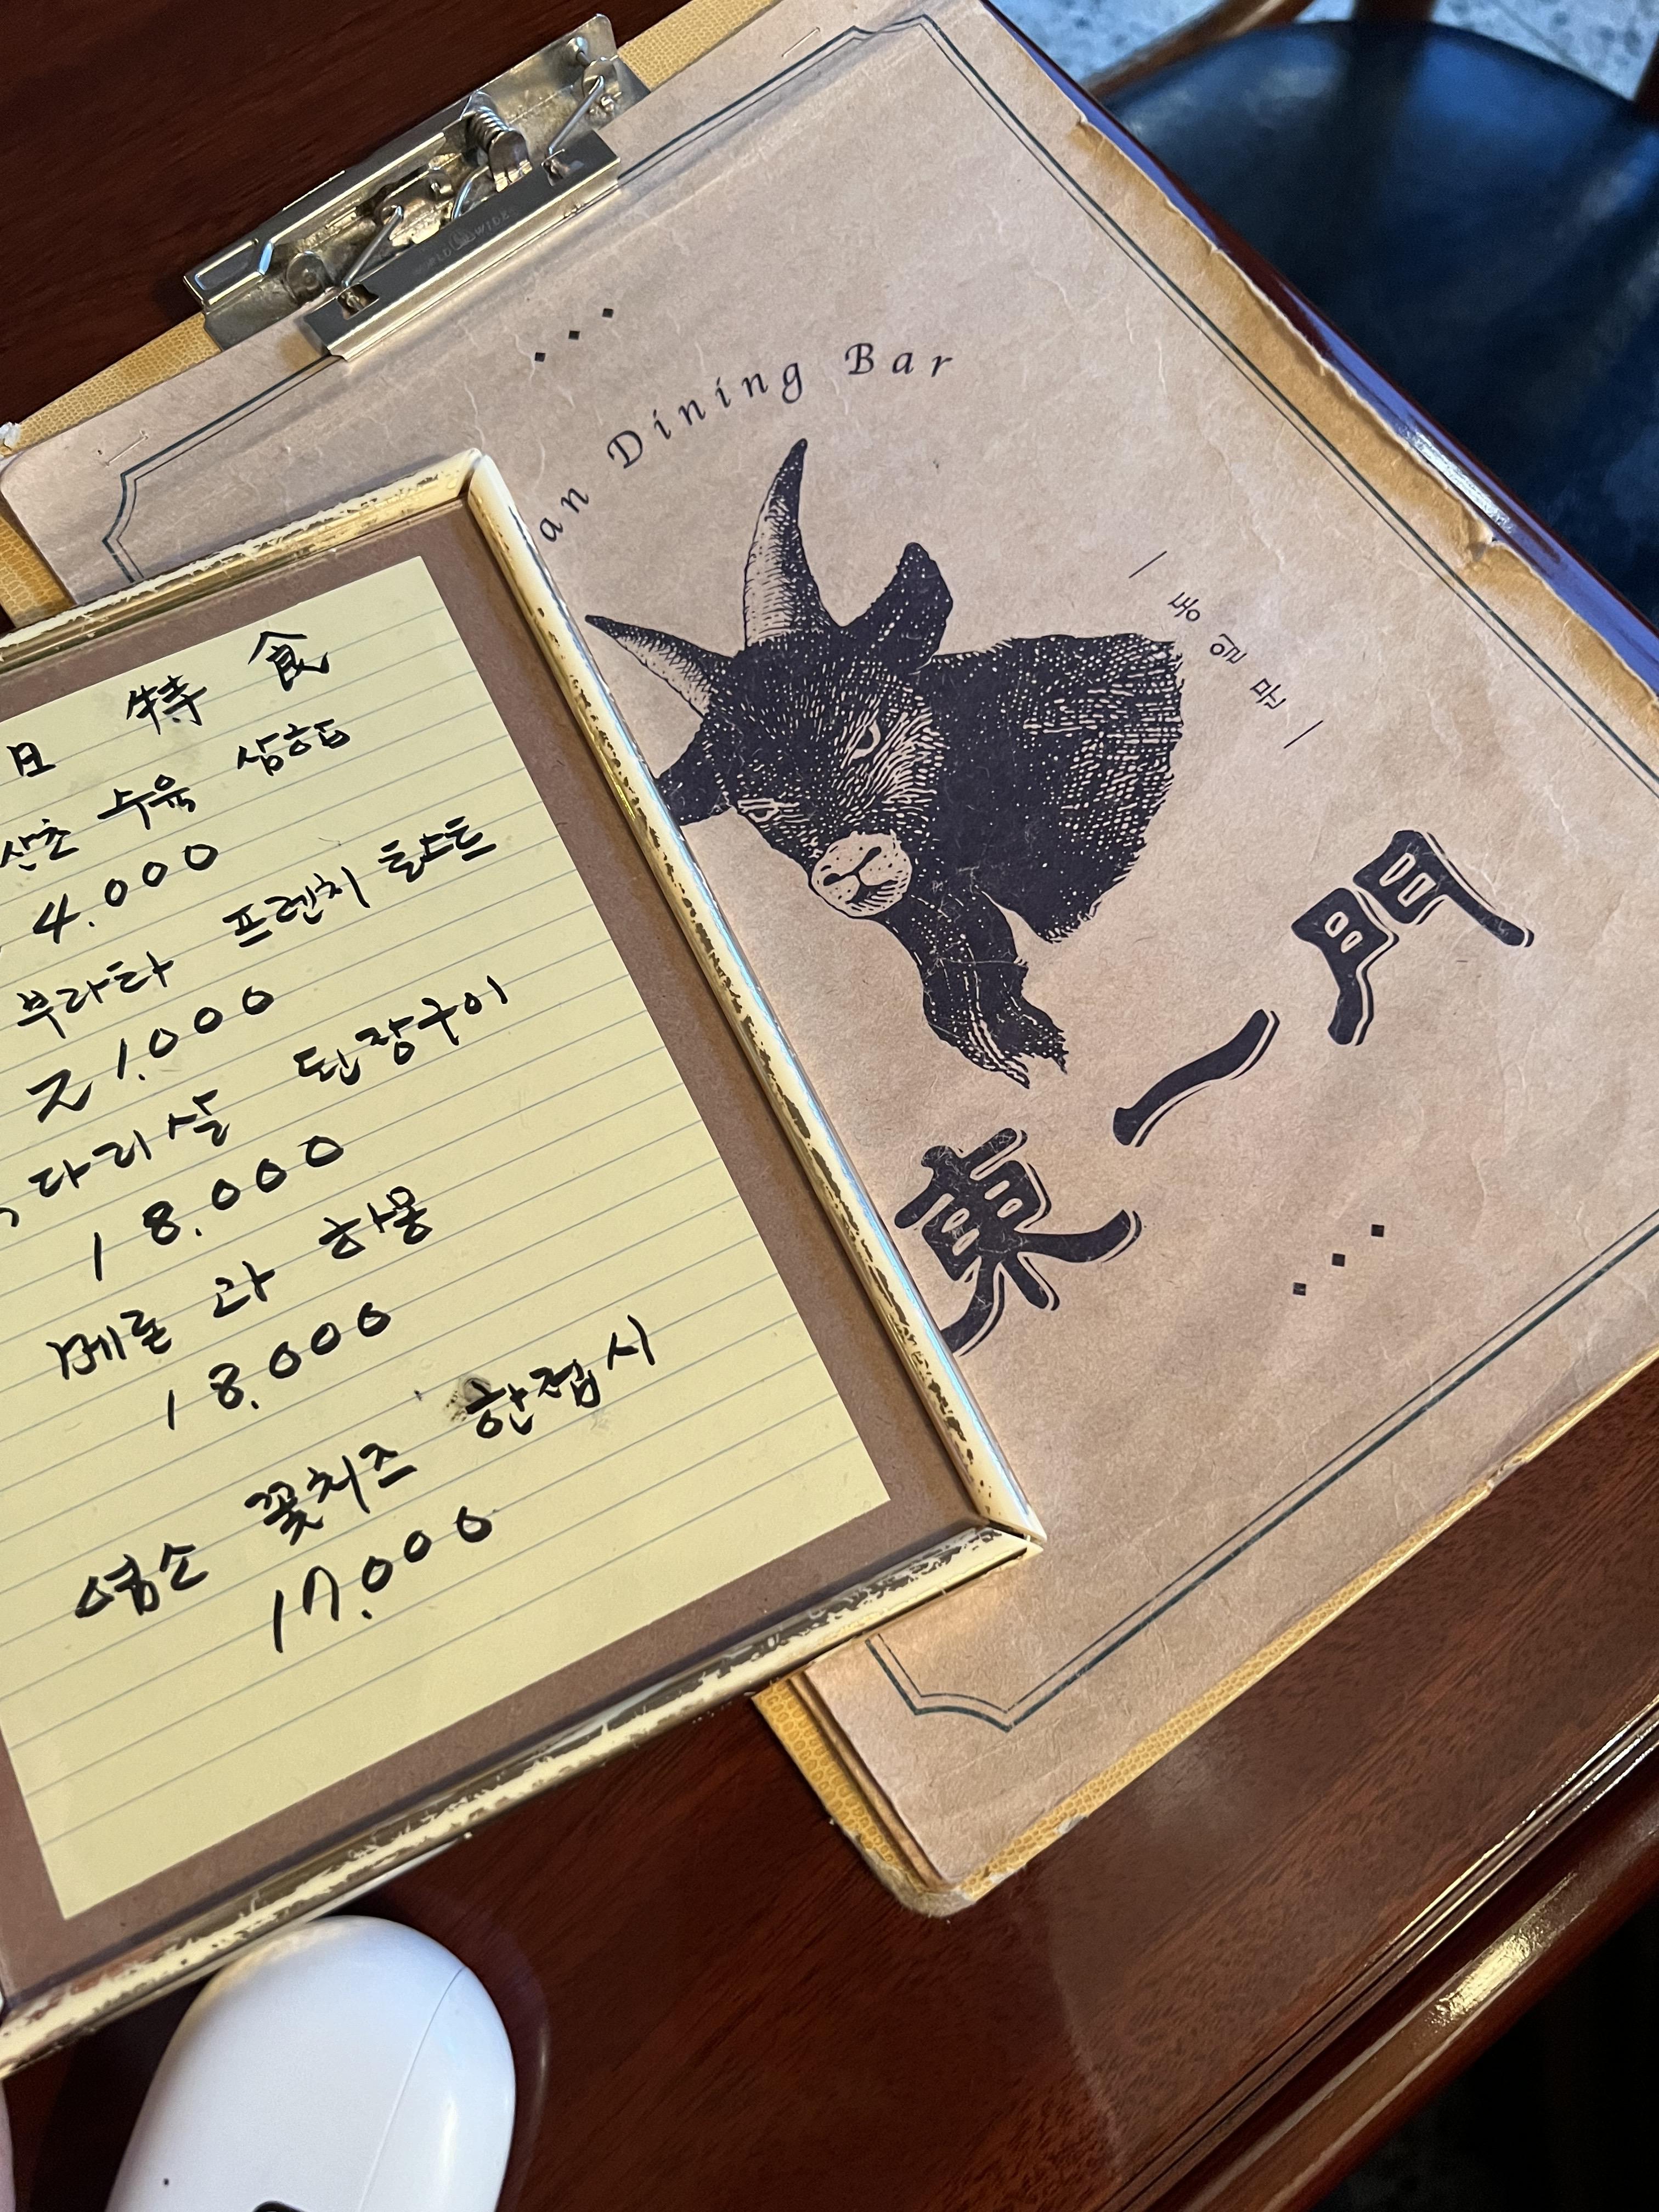 日 特 食
산초 수육 삼합
4.000
부라타 프렌치 토스트
21.000
다리살 된장구이
18.000
메로 과 하몽
18.000
염소 꽃치즈 한접시
17.000
an Dining Bar
동일문
東一門